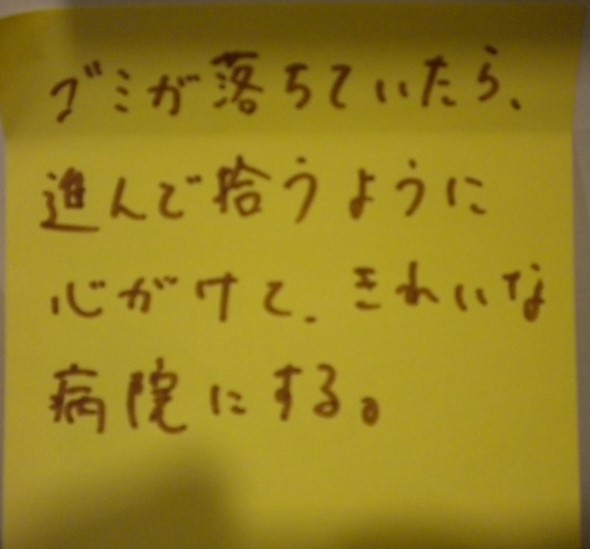 ゴミが落ちていたら、
進んで拾うように
心がけて、きれいな
病院にする。